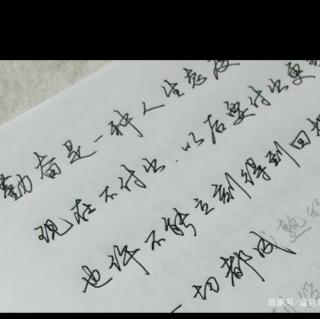 勤奋是一种人生态度
现在不付出，以后要付出更
也许不能立刻得到回报
一切都成
熟的
百家号/